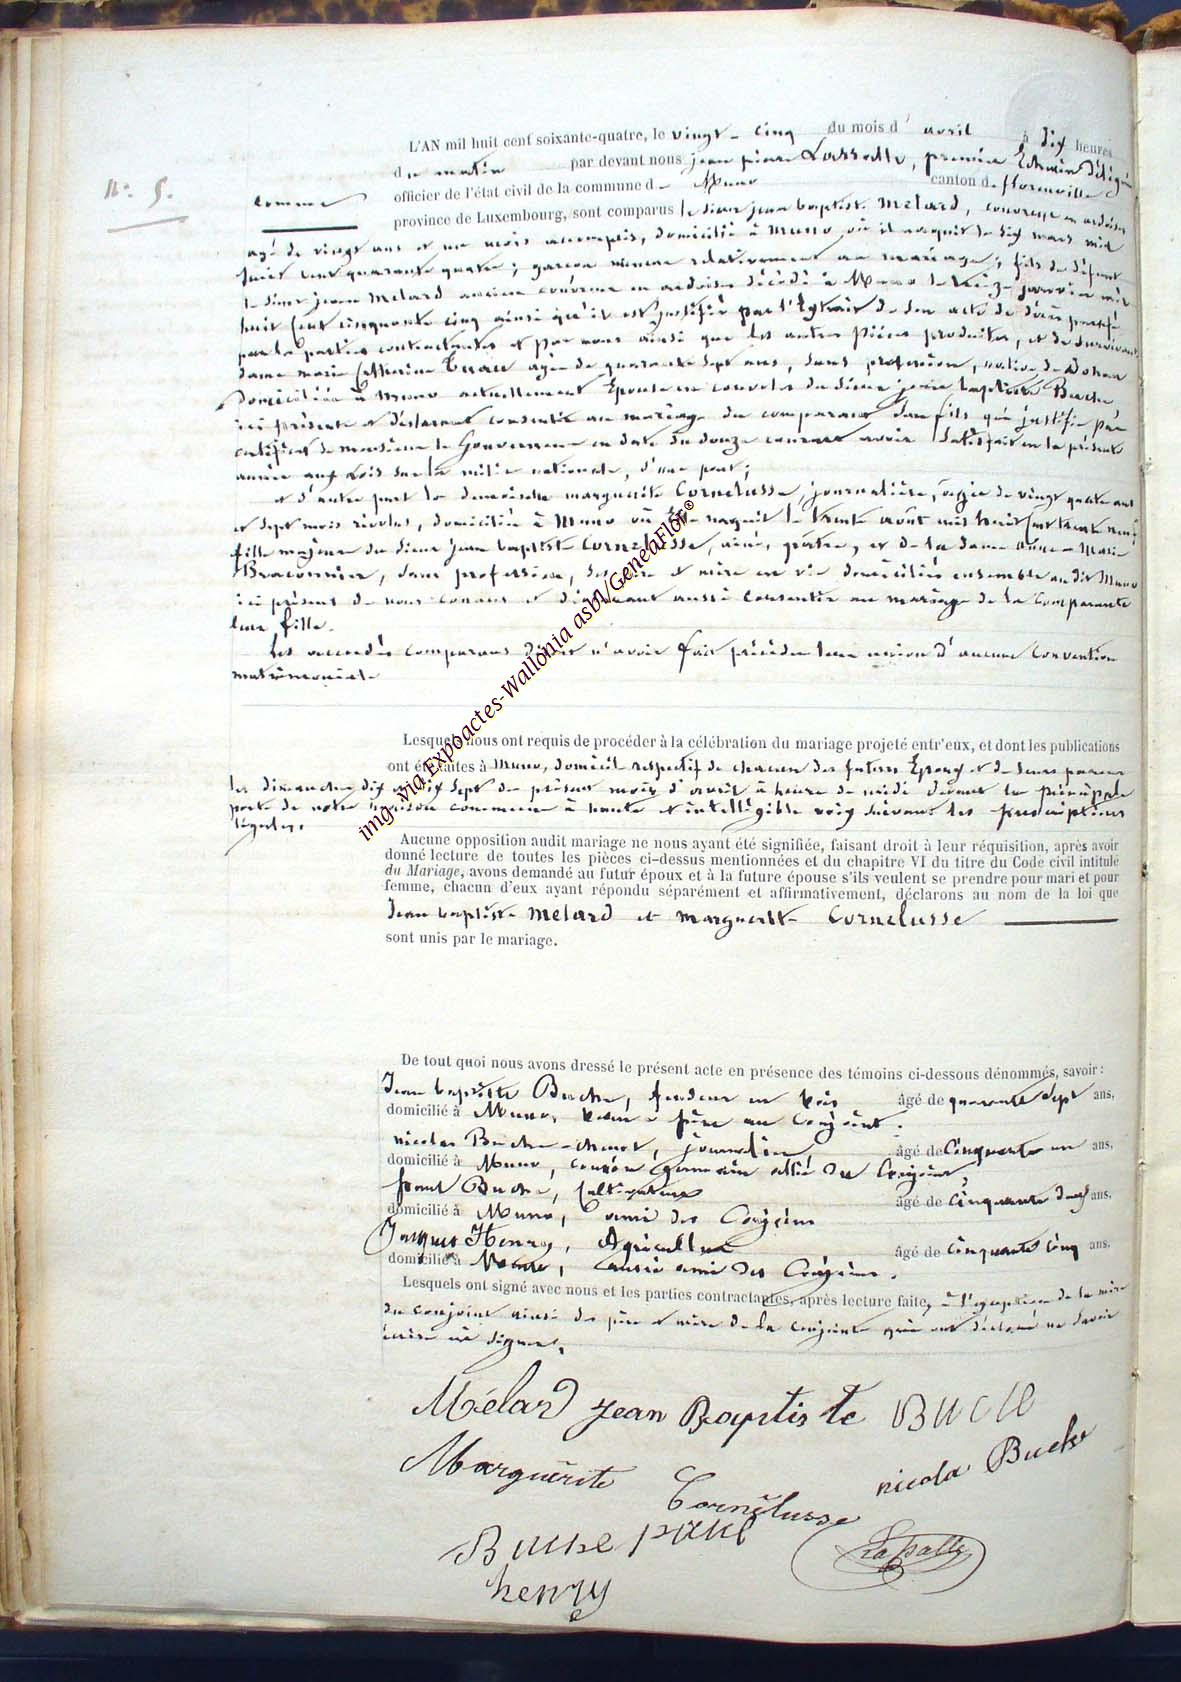 N°. 5.
L'AN mil huit cent soixante-quatre, le vingt-cinq du mois d'avril à dix heures
du matin par devant nous jean pierre Lassalle, premier Echevin délégué
comme officier de l'état civil de la commune de Muno canton de florenville
province de Luxembourg, sont comparus le sieur jean baptiste Melard, couvreur en ardoises
agé de vingt ans et un mois accomplis, domicilié à Muno où il naquit le dix mars mil
huit cent quarante quatre; garçon mineur relativement au mariage; fils de défunt
le sieur jean Melard ancien couvreur en ardoises décédé à Muno le treize janvier mil
huit cent cinquante cinq ainsi qu'il est justifié par l'Extrait de son acte de décès
par les parties contractantes et par nous ainsi que les autres pièces produites, et de survivante
dame marie Catherine agée de quarante sept ans, sans profession, native de
domiciliée à Muno actuellement Epouse en convol du sieur jean baptiste Buche
ici présente et déclarant consentir au mariage du comparant son fils qui justifie par
certificat de monsieur le Gouverneur en date du douze courant avoir satisfait en la présente
année aux Lois sur la milice nationale, d'une part;
et d'autre part la demoiselle marguerite Cornelusse, journalière, agée de vingt quatre ans
et sept mois révolus, domiciliée à Muno où Elle naquit le trente août mil huit cent trente neuf
fille majeure du sieur jean baptiste Cornelusse, ainé, et de la dame Anne-Marie
Braconnier, sans profession, ses père et mère en vie domiciliés ensemble au dit Muno
ici présens de nous connus et déclarant aussi consentir au mariage de la Comparante
leur fille.
Les accordés comparans n'avoir fait précéder leur union d'aucune Convention
matrimoniale
Lesquels nous ont requis de procéder à la célébration du mariage projeté entr'eux, et dont les publications
ont été faites à Muno, domicile respectif de chacun des futurs Epoux et de leurs parens
les dimanches dix et dix sept du présent mois d'avril à heure de midi devant la principale
porte de notre maison commune à haute et intelligible voix suivant les prescriptions
légales.
Aucune opposition audit mariage ne nous ayant été signifiée, faisant droit à leur réquisition, après avoir
donné lecture de toutes les pièces ci-dessus mentionnées et du chapitre VI du titre du Code civil intitulé
du Mariage, avons demandé au futur époux et à la future épouse s'ils veulent se prendre pour mari et pour
femme, chacun d'eux ayant répondu séparément et affirmativement, déclarons au nom de la loi que
Jean baptiste Melard et marguerite Cornelusse
sont unis par le mariage.
De tout quoi nous avons dressé le présent acte en présence des témoins ci-dessous dénommés, savoir:
Jean baptiste Buche, fendeur en bois âgé de quarante sept ans,
domicilié à Muno, beau-père au Conjoint.
nicolas Buche-, journalier âgé de Cinquante un ans,
domicilié à Muno, cousin germain allié du Conjoint
paul Buche, Cultivateur âgé de cinquante deux ans,
domicilié à Muno, ami des Conjoins
Jacques Henry, Agriculteur âgé de cinquante cinq ans,
domicilié à Muno, aussi ami des Conjoins.
Lesquels ont signé avec nous et les parties contractantes, après lecture faite, à l'exception de la mère
du conjoint ainsi des père et mère de la conjointe qui ont déclaré ne savoir
écrire ni signer.
Mélard Jean Baptiste Buche
Marguerite Cornélusse nicola Buche
Buche paul
Lassalle
henry
img. via Expoactes-Wallonia asbl/GeneaFlor©